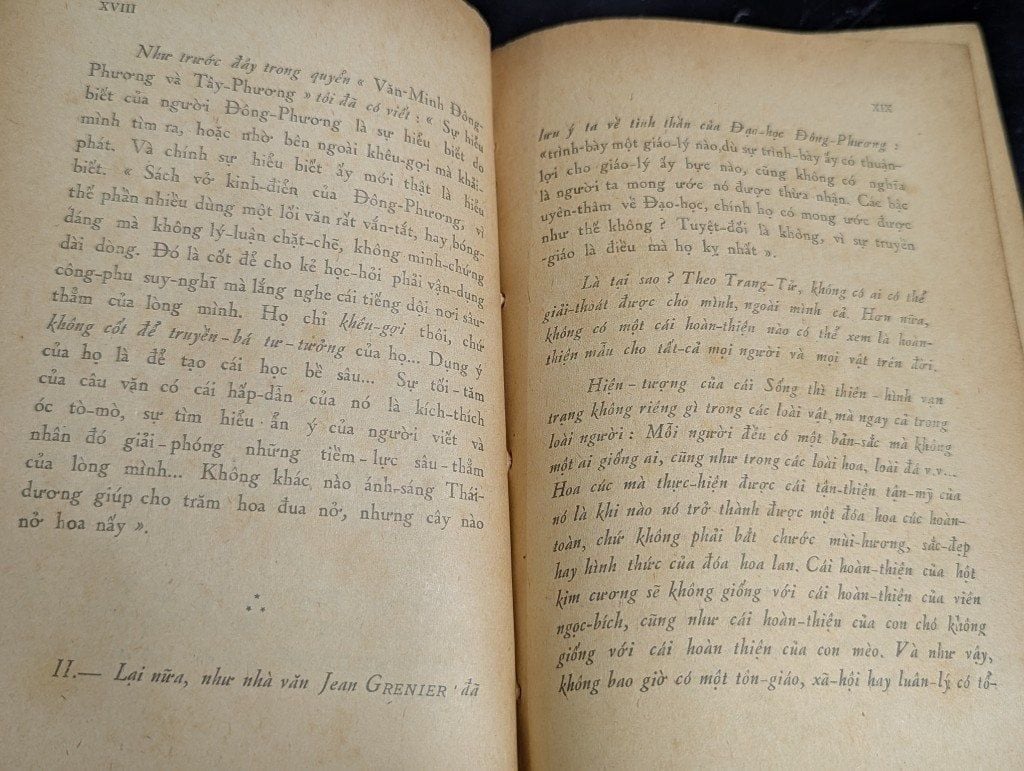 XVIII
Như trước đây trong quyển « Văn-Minh Đông-
Phương và Tây-Phương » tôi đã có viết : « Sự hiểu
biết của người Đông-Phương là sự hiểu biết do
mình tìm ra, hoặc nhờ bên ngoài khêu-gợi mà khải-
phát. Và chính sự hiểu biết ấy mới thật là hiểu
biết. « Sách vở kinh-điển của Đông-Phương, vì
thế phần nhiều dùng một lối văn rất vắn-tắt, hay bóng-
dáng mà không lý-luận chặt-chẽ, không minh-chứng
dài dòng. Đó là cốt để cho kẻ học-hỏi phải vận-dụng
công-phu suy-nghĩ mà lắng nghe cái tiếng dội nơi sâu-
thẳm của lòng mình. Họ chỉ khêu-gợi thôi, chứ
không cốt để truyền-bá tư-tưởng của họ... Dụng ý
của họ là để tạo cái học bề sâu... Sự tối-tăm
của câu văn có cái hấp-dẫn của nó là kích-thích
óc tò-mò, sự tìm hiểu ẩn ý của người viết và
nhân đó giải-phóng những tiềm-lực sâu-thẳm
của lòng mình... Không khác nào ánh-sáng Thái-
dương giúp cho trăm hoa đua nở, nhưng cây nào
nở hoa nấy ».
II.— Lại nữa, như nhà văn Jean GRENIER đã
XIX
lưu ý ta về tinh thần của Đạo-học Đông-Phương :
«trình-bày một giáo-lý nào,dù sự trình-bày ấy có thuận-
lợi cho giáo-lý ấy bực nào, cũng không có nghĩa
là người ta mong ước nó được thừa nhận. Các bậc
uyên-thâm về Đạo-học, chính họ có mong ước được
như thế không ? Tuyệt-đối là không, vì sự truyền
-giáo là điều mà họ kỵ nhất ».
Là tại sao ? Theo Trang-Tử, không có ai có thể
giải-thoát được cho mình, ngoài mình cả. Hơn nữa,
không có một cái hoàn-thiện nào có thể xem là hoàn-
thiện mẫu cho tất-cả mọi người và mọi vật trên đời.
Hiện-tượng của cái Sống thì thiên-hình vạn
trạng không riêng gì trong các loài vật, mà ngay cả trong
loài người : Mỗi người đều có một bản-sắc mà không
một ai giống ai, cũng như trong các loài hoa, loài đá v.v...
Hoa cúc mà thực-hiện được cái tận-thiện tận-mỹ của
nó là khi nào nó trở thành được một đóa hoa cúc hoàn-
toàn, chứ không phải bắt chước mùi-hương, sắc-đẹp
hay hình thức của đóa hoa lan. Cái hoàn-thiện của hột
kim cương sẽ không giống với cái hoàn-thiện của viên
ngọc-bích, cũng như cái hoàn-thiện của con chó không
giống với cái hoàn thiện của con mèo. Và như vậy,
không bao giờ có một tôn-giáo, xã-hội hay luân-lý có tổ-